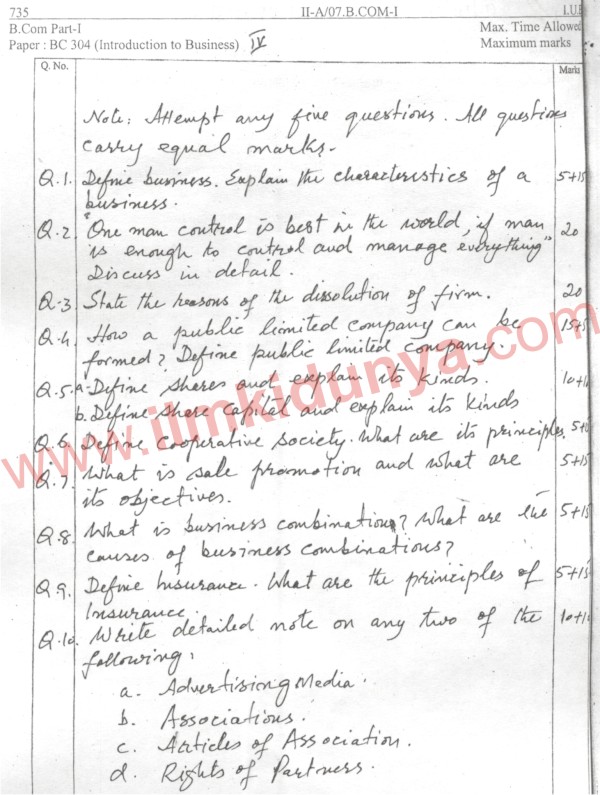 735 II-A/07.B.COM-I I.U.
B.Com Part-I Max. Time Allowed
Paper : BC 304 (Introduction to Business) IV Maximum marks
Q. No. Marks
Note: Attempt any five questions. All questions
carry equal marks.
Q.1. Define business. Explain the characteristics of a 5+15
business.
Q.2. "One man control is best in the world, if man 20
is enough to control and manage everything"
Discuss in detail.
Q.3 State the reasons of the dissolution of firm. 20
Q.4. How a public limited company can be 15+5
formed? Define public limited company.
Q.5. a. Define shares and explain its kinds. 10+1
b. Define share capital and explain its kinds
Q.6. Define Cooperative society. What are its principles.
Q.7. What is sale promotion and what are 5+15
its objectives.
Q.8. What is business combinations? What are the 5+15
causes of business combinations?
Q.9. Define Insurance. What are the principles of 5+15
Insurance.
Q.10. Write detailed note on any two of the 10+1
following:
a. Advertising Media.
b. Associations.
c. Articles of Association.
d. Rights of Partners.
www.ilmkidunya.com